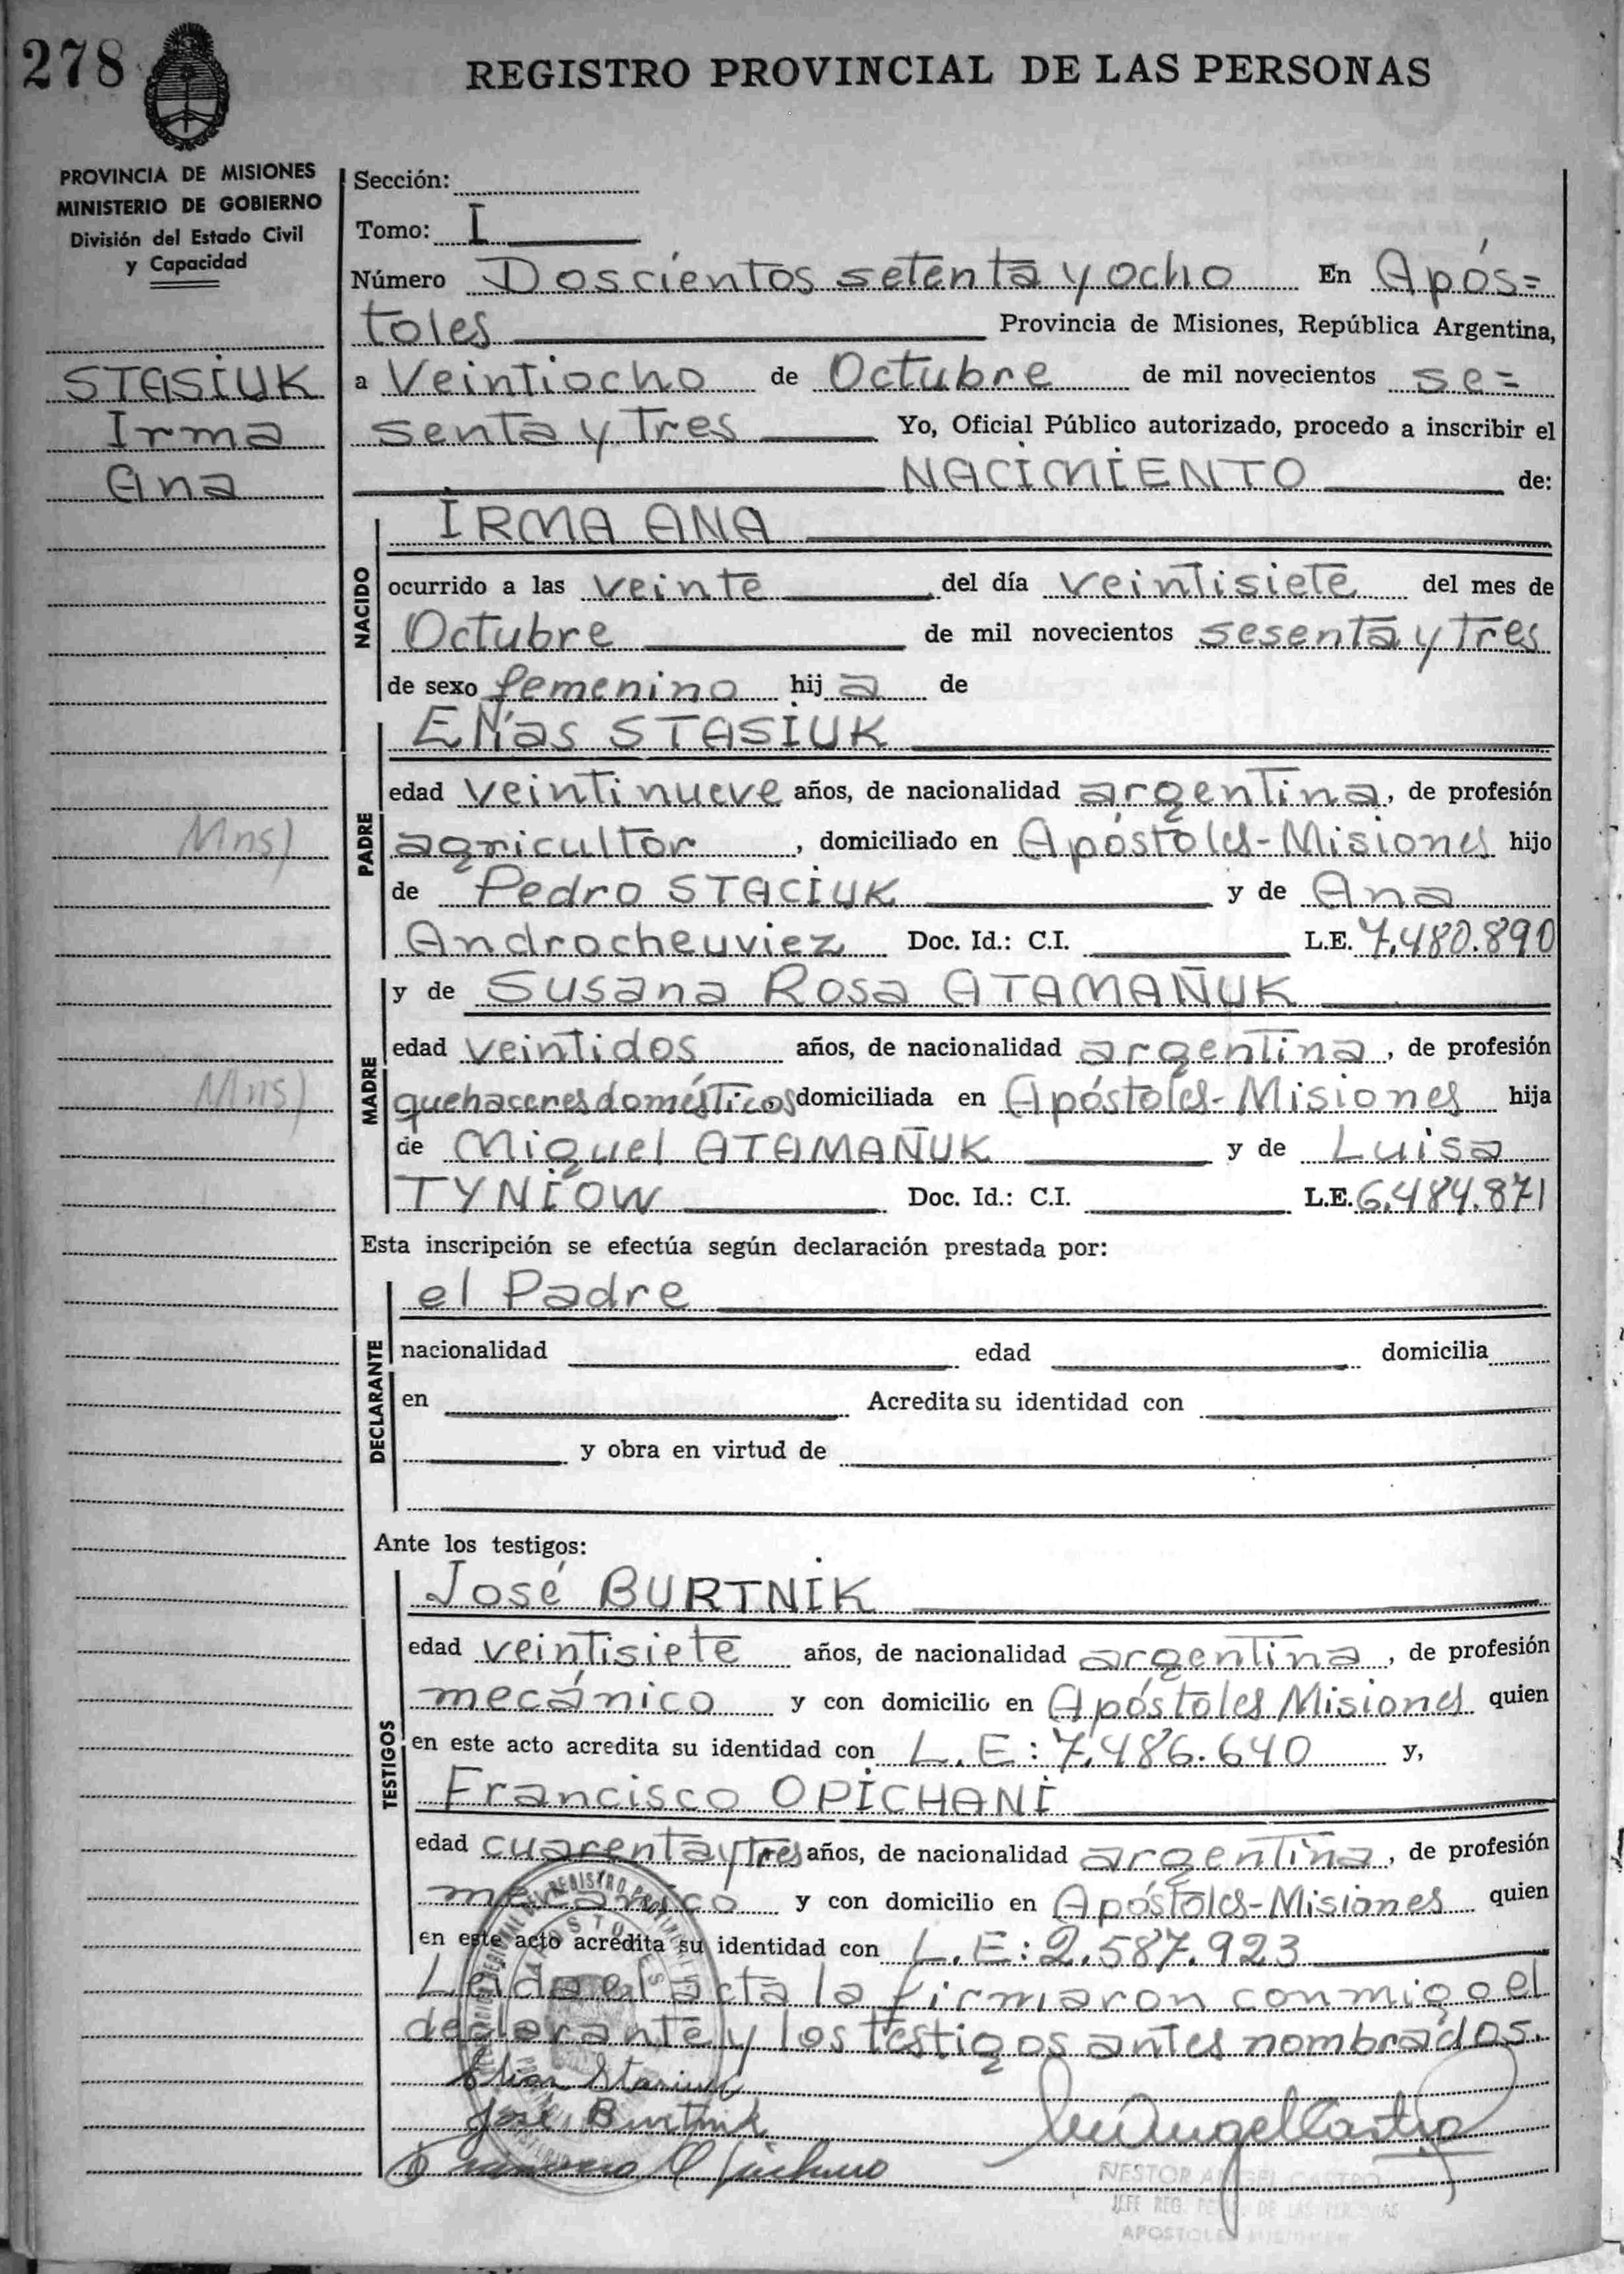 278
REGISTRO PROVINCIAL DE LAS PERSONAS
PROVINCIA DE MISIONES
MINISTERIO DE GOBIERNO
División del Estado Civil
y Capacidad
STASIUK
Irma
Ana
Mns)
Mns)
Sección:
Tomo: I
Número Doscientos setenta y ocho En Após=
toles Provincia de Misiones, República Argentina,
a Veintiocho de Octubre de mil novecientos se=
senta y tres Yo, Oficial Público autorizado, procedo a inscribir el
NACIMIENTO de:
NACIDO
IRMA ANA
ocurrido a las veinte del día veintisiete del mes de
Octubre de mil novecientos sesenta y tres
de sexo femenino hij a de
PADRE
Elías STASIUK
edad veintinueve años, de nacionalidad argentina, de profesión
agricultor, domiciliado en Apóstoles-Misiones hijo
de Pedro STACIUK y de Ana
Androcheuviez Doc. Id.: C.I. L.E. 7.480.890
MADRE
y de Susana Rosa ATAMAÑUK
edad veintidos años, de nacionalidad argentina, de profesión
quehaceres domésticos domiciliada en Apóstoles-Misiones hija
de Miguel ATAMAÑUK y de Luisa
TYNIOW Doc. Id.: C.I. L.E. 6.484.871
Esta inscripción se efectúa según declaración prestada por:
DECLARANTE
el Padre
nacionalidad edad domicilia
en Acredita su identidad con
y obra en virtud de
Ante los testigos:
TESTIGOS
José BURTNIK
edad veintisiete años, de nacionalidad argentina, de profesión
mecánico y con domicilio en Apóstoles Misiones quien
en este acto acredita su identidad con L.E: 7.486.640 y,
Francisco OPICHANI
edad cuarenta y tres años, de nacionalidad argentina, de profesión
mecánico y con domicilio en Apóstoles-Misiones quien
en este acto acredita su identidad con L.E: 2.587.923
Leida el acta la firmaron conmigo el
declarante y los testigos antes nombrados.
Elias Stasiuk
José Burtnik
NESTOR ANGEL CASTRO
JEFE REG. DE LAS PERSONAS
APOSTOLES MISIONES